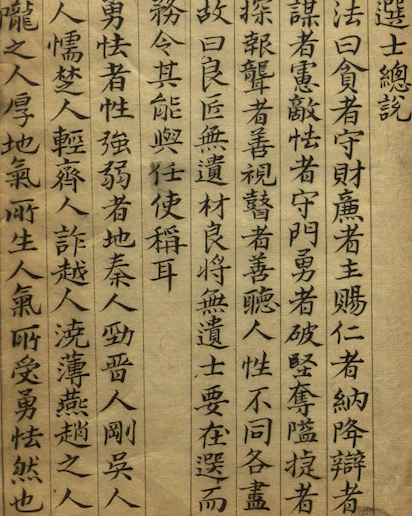 選士總說
法曰貪者守財廉者主賜仁者納降辯者
謀者憲敵怯者守門勇者破堅奪隘㨗者
探報聾者善視瞽者善聽人性不同各盡
故曰良匠無遺材良將無遺士要在選而
務令其能與任使稱耳
勇怯者性強弱者地秦人勁晋人剛吳人
人懦楚人輕齊人詐越人澆薄燕趙之人
隴之人厚地氣所生人氣所受勇怯然也